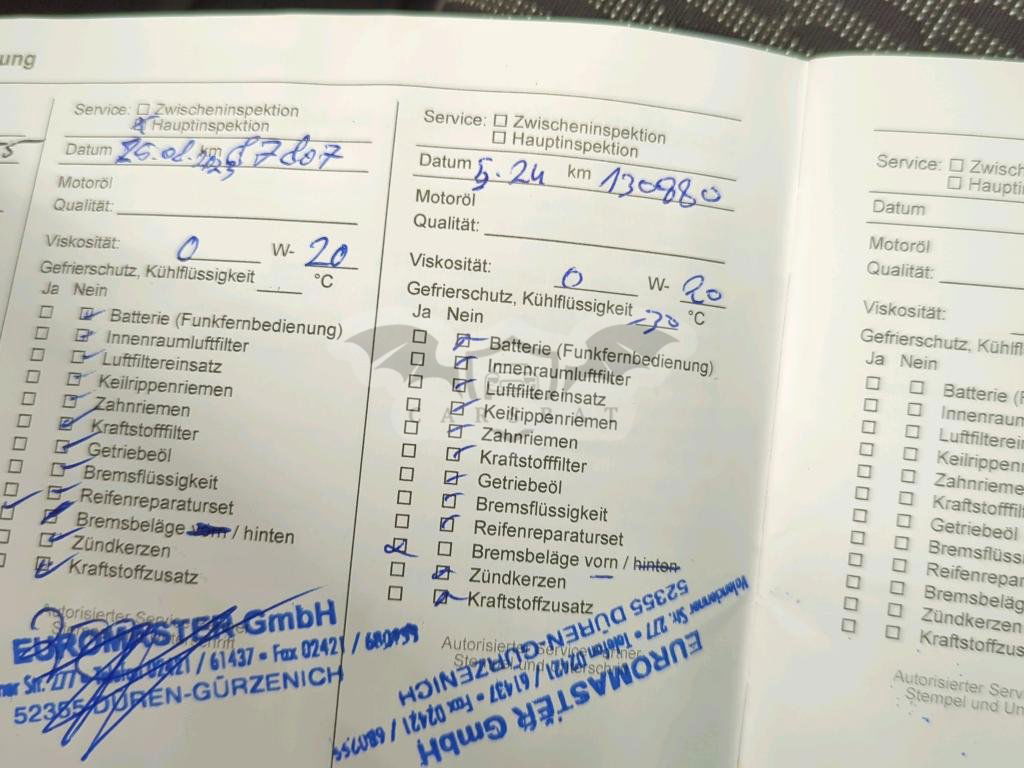 ung
Service: Zwischeninspektion
Hauptinspektion
Datum km 87807
Motoröl
Qualität:
Viskosität: 0 W- 20
Gefrierschutz, Kühlflüssigkeit °C
Ja Nein
Batterie (Funkfernbedienung)
Innenraumluftfilter
Luftfiltereinsatz
Keilrippenriemen
Zahnriemen
Kraftstofffilter
Getriebeöl
Bremsflüssigkeit
Reifenreparaturset
Bremsbeläge vorn / hinten
Zündkerzen
Kraftstoffzusatz
Autorisierter
EUROMASTER GmbH
Str. 277 • 02421 / 61437 • Fax 02421 /
52355 DÜREN-GÜRZENICH
Service: Zwischeninspektion
Hauptinspektion
Datum 5.24 km 130880
Motoröl
Qualität:
Viskosität: 0 W- 20
Gefrierschutz, Kühlflüssigkeit -30 °C
Ja Nein
Batterie (Funkfernbedienung)
Innenraumluftfilter
Luftfiltereinsatz
Keilrippenriemen
CAR BAT
Zahnriemen
Kraftstofffilter
Getriebeöl
Bremsflüssigkeit
Reifenreparaturset
Bremsbeläge vorn / hinten
Zündkerzen
Kraftstoffzusatz
Autorisierter Servicepartner
Stempel und Unterschrift
EUROMASTER GmbH
Str. 277 • Telefon 02421 / 61437 • Fax 02421 /
52355 DÜREN-GÜRZENICH
Service: Zwisch
Haupti
Datum
Motoröl
Qualität:
Viskosität:
Gefrierschutz, Kühlfl
Ja Nein
Batterie (F
Innenraum
Luftfilterein
Keilrippenr
Zahnrieme
Kraftstofff
Getriebeöl
Bremsflüss
Reifenrepar
Bremsbeläg
Zündkerzen
Kraftstoffzus
Autorisierter Serv
Stempel und Un